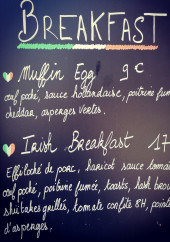 BREAKFAST
Muffin Egg 9€
œuf poché, sauce hollandaise, poitrine fum
cheddar, asperges vertes.
Irish Breakfast 17
Effiloché de porc, haricot sauce tomat
œuf poché, poitrine fumée, toasts, hash brow
shiitakes grillés, tomate confite 8H, pointe
d'asperges.